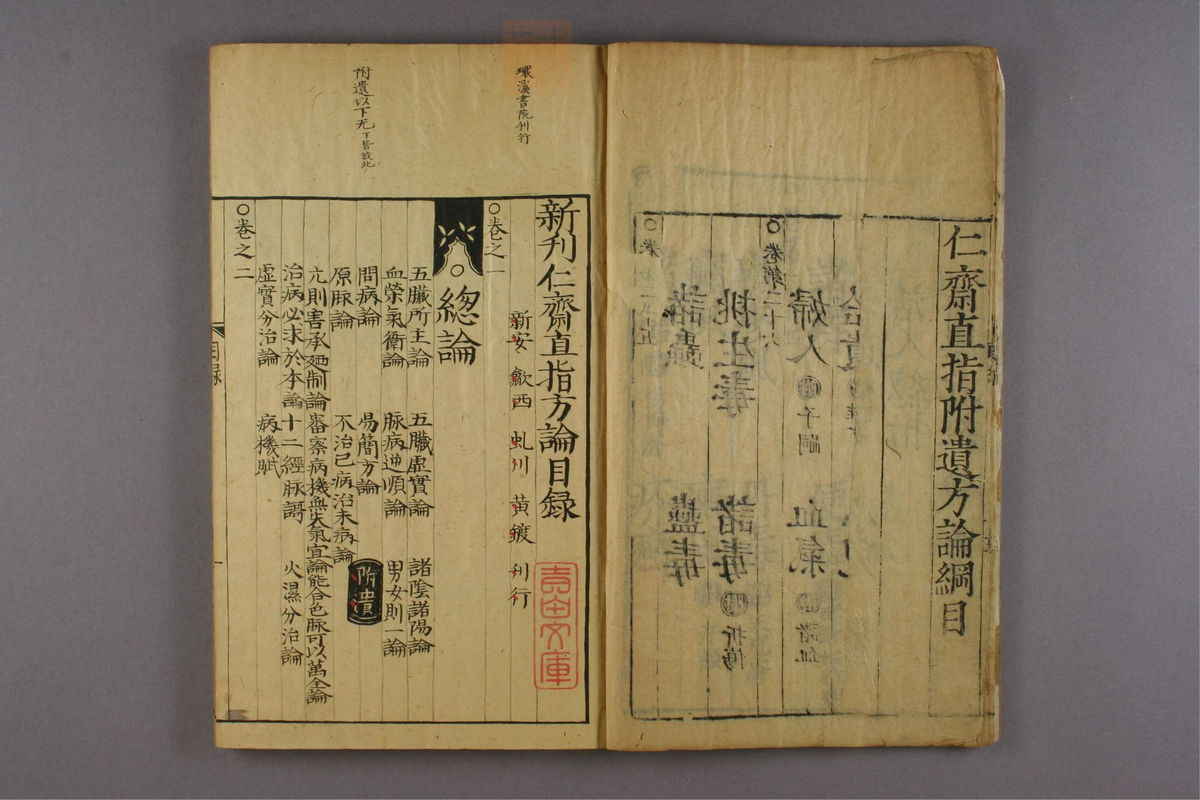 仁齋直指附遺方論綱目
環溪書院刊行
附遺以下无下皆放此
新刊仁齋直指方論目録
新安 歙西 虬川 黃鍍 刊行
○卷之一
總論
五臟所主論 五臟虛實論 諸陰諸陽論
血榮氣衛論 脉病逆順論 男女則一論
問病論 易簡方論 附遺
原脉論 不治已病治未病論
亢則害承廼制論 審察病機無失氣宜論 能合色脉可以萬全論
治病必求於本論 十二經脉謌 火濕分治論
虛實分治論 病機賦
○卷之二
目録
吉田文庫